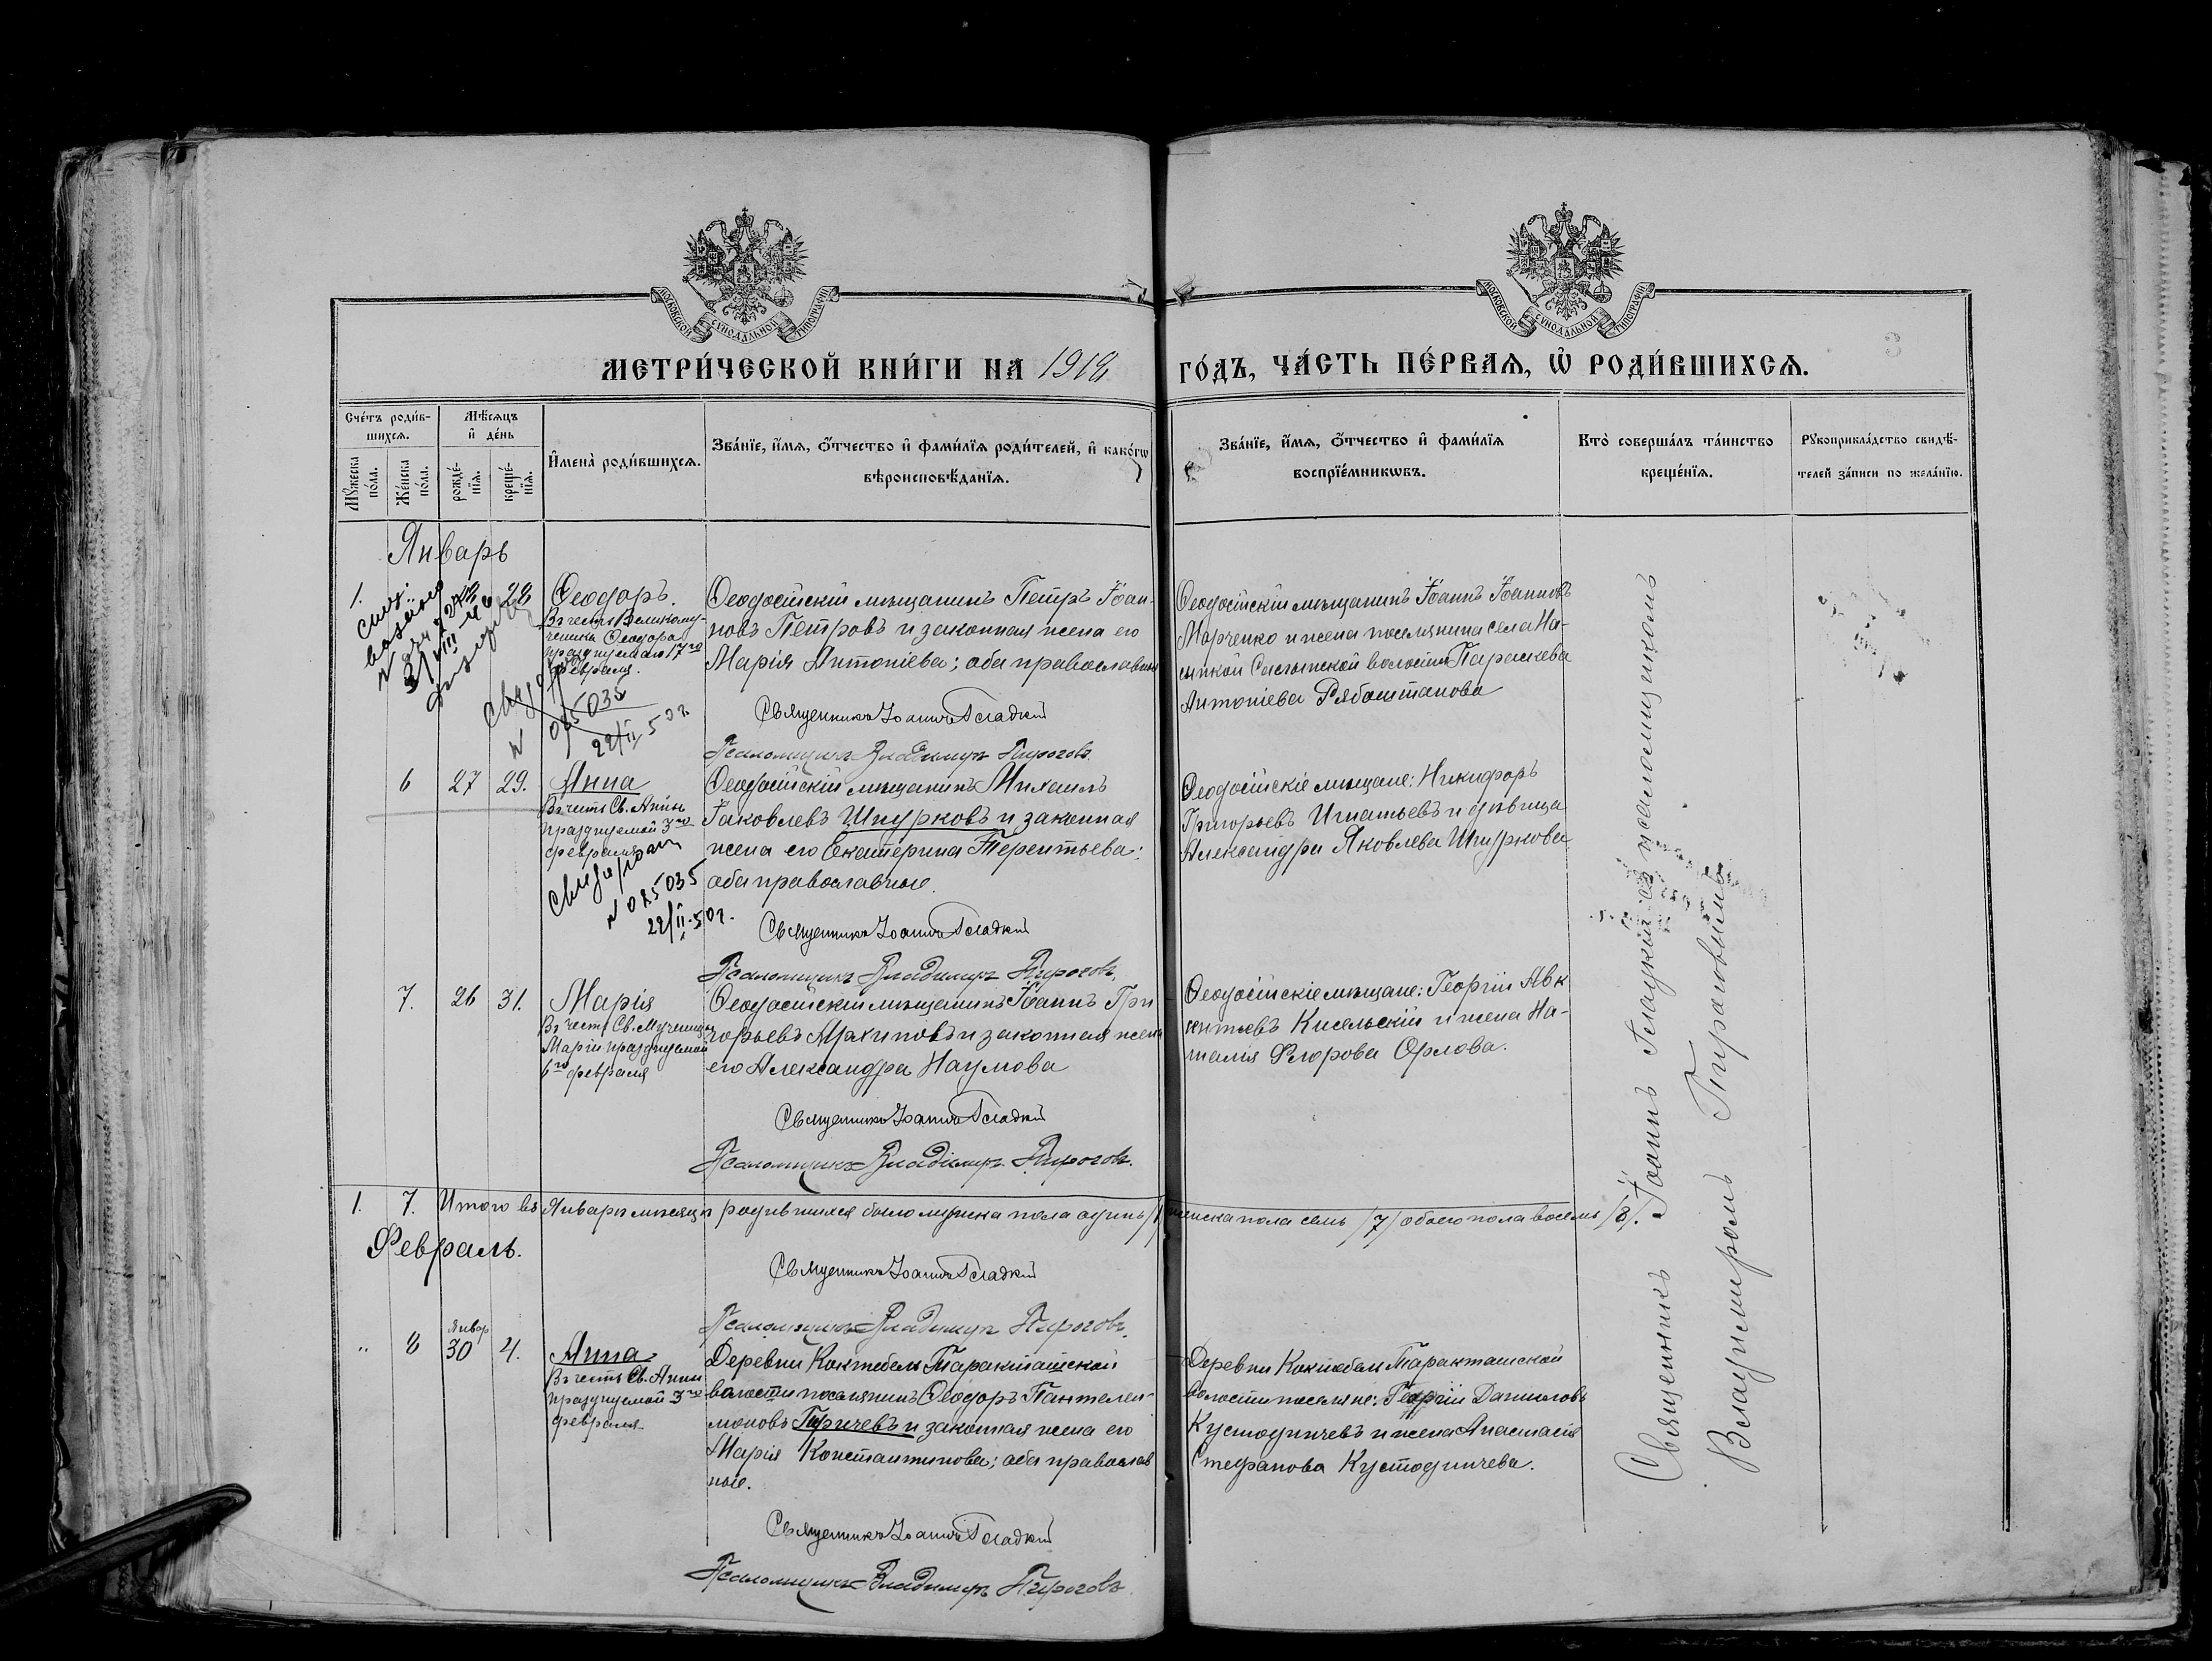 МОСКОВСКОЙ СѴНОДАЛЬНОЙ ТИПОГРАФІИ
МОСКОВСКОЙ СѴНОДАЛЬНОЙ ТИПОГРАФІИ
МЕТРИ́ЧЕСКОЙ КНИ́ГИ НА
ГО́ДЪ, ЧА́СТЬ ПЕ́РВАѦ, Ѽ РОДИ́ВШИХСѦ.
3
Сче́тъ роди́в-
шихсѧ.
Мѣ́сѧцъ
и҆ де́нь
Мꙋ́жеска по́ла.
Же́нска по́ла.
рожде́-
нїѧ.
креще́-
нїѧ.
И҆мена̀ роди́вшихсѧ.
Зва́нїе, и҆́мѧ, ѻ҆́тчество и҆ фами́лїѧ роди́телей, и҆ како́гѡ
вѣроисповѣ́данїѧ.
Зва́нїе, и҆́мѧ, ѻ҆́тчество и҆ фами́лїѧ
воспрїе́мникѡвъ.
Кто̀ соверша́лъ та́инство
креще́нїѧ.
Рꙋкоприкла́дство свидѣ́-
телей за́писи по жела́нїю.
Январь
1.
28
Ѳеодоръ.
Въ честь Великому-
ченика Ѳеодора
празднуемаго 17го
февраля.
Ѳеодосійскій мѣщанинъ Петръ Іоан-
новъ Петровъ и законная жена его
Марія Антоніева; оба православные
Священникъ Іоаннъ Гладкій
Псаломщикъ Владимиръ Пироговъ.
Ѳеодосійскій мѣщанинъ Іоаннъ Іоанновъ
Марченко и жена поселянина села На-
сыпкой Салынской волости Параскева
Антоніева Рябоштанова
025035
22/II 50г.
6 27 29.
Анна
Въ честь Св. Анны
празднуемой 3го
февраля
№ 025035
22/II.50г.
Ѳеодосійскій мѣщанинъ Михаилъ
Іаковлевъ Шпурковъ и законная
жена его Екатерина Терентьева;
оба православные.
Священникъ Іоаннъ Гладкій
Псаломщикъ Владимиръ Пироговъ.
Ѳеодосійскіе мѣщане: Никифоръ
Григорьевъ Игнатьевъ и дѣвица
Александра Яковлева Шпуркова
7. 26 31.
Марія
Въ честь Св. Мученицы
Маріи празднуемой
6го февраля
Ѳеодосійскій мѣщанинъ Іоаннъ Гри
горьевъ Архиповъ и законная жена
его Александра Наумова
Священникъ Іоаннъ Гладкій
Псаломщикъ Владимиръ Пироговъ.
Ѳеодосійскіе мѣщане: Георгій Авк
сентьевъ Кисельскій и жена На-
талія Флорова Орлова.
1. 7. Итого въ Январѣ мѣсяцѣ родившихся было мужска пола одинъ /1/ женска пола семь /7/ обоего пола восемь /8/.
Февраль.
Священникъ Іоаннъ Гладкій
Псаломщикъ Владимиръ Пироговъ.
" 8 Январ 30 4.
Анна
Въ честь Св. Анны
празднуемой 3го
февраля
Деревни Коктебель Таракташской
волости поселянинъ Ѳеодоръ Пантелеи-
моновъ Тиричевъ и законная жена его
Марія Константинова; оба православ
ные.
Священникъ Іоаннъ Гладкій
Псаломщикъ Владимиръ Пироговъ.
Деревни Коктебель Таракташской
волости поселяне: Георгій Даниловъ
Кустодинчевъ и жена Анастасія
Стефанова Кустодинчева.
Священникъ Іоаннъ Гладкій съ псаломщикомъ
Владимиромъ Пироговымъ